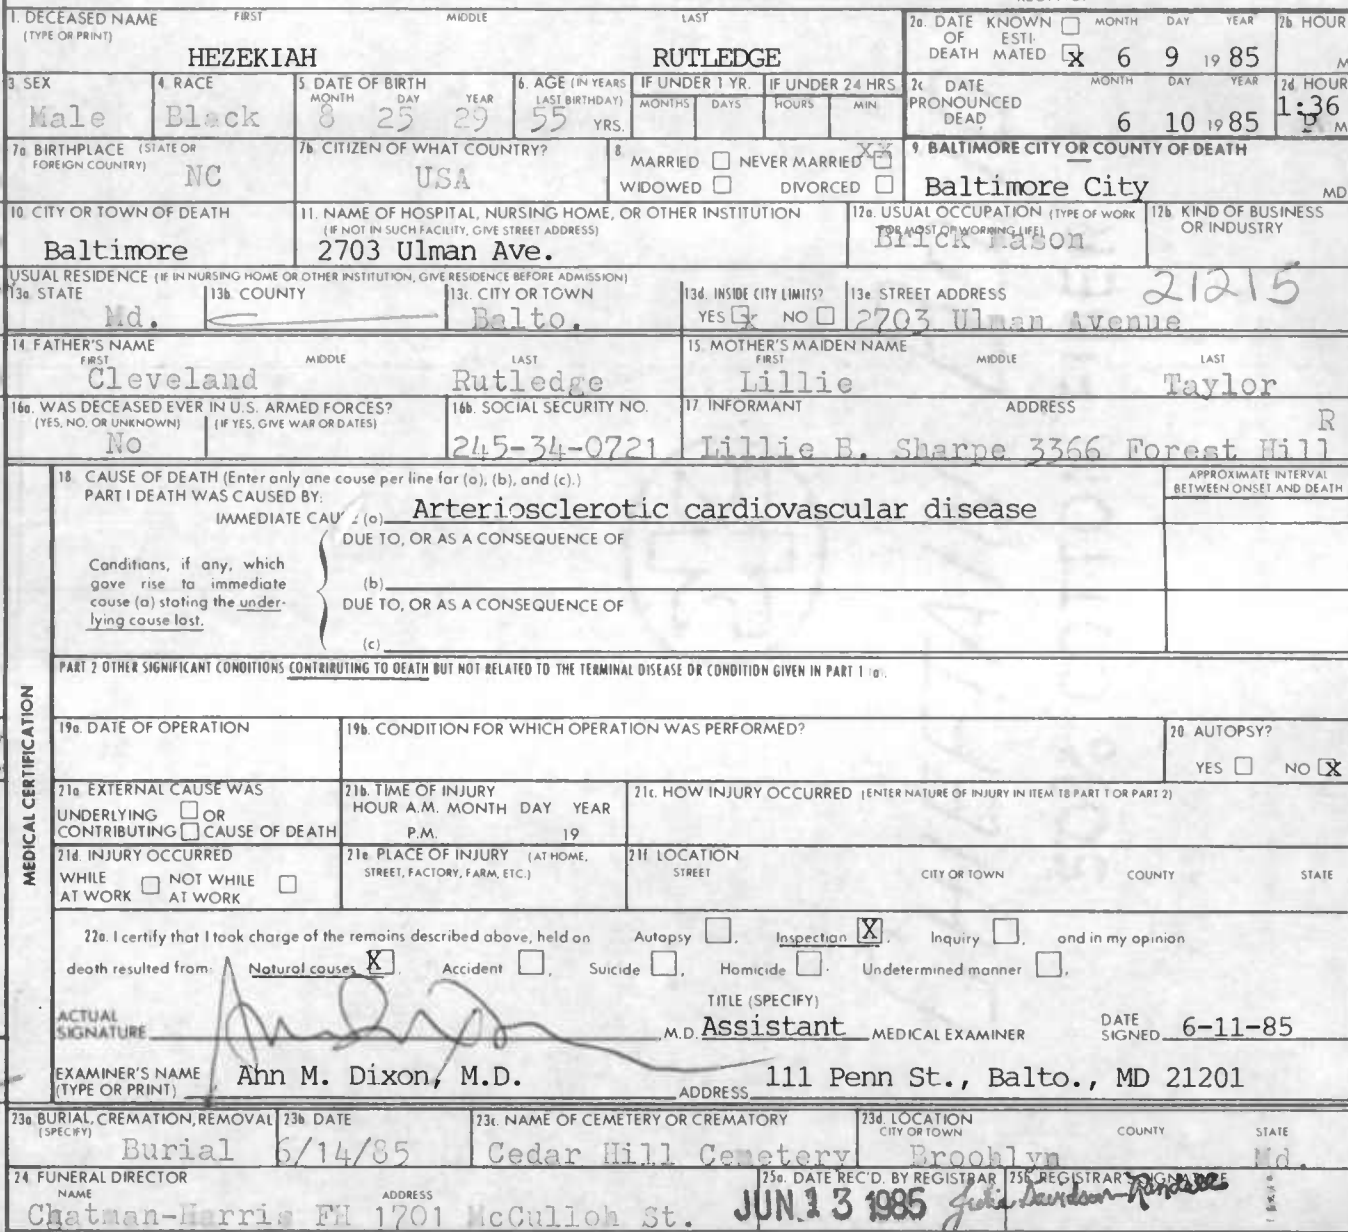 1. DECEASED NAME FIRST MIDDLE LAST
(TYPE OR PRINT)
HEZEKIAH RUTLEDGE
2a. DATE OF DEATH KNOWN ☐ ESTI-MATED ☒ MONTH DAY YEAR
6 9 19 85
2b HOUR
M
3 SEX
Male
4 RACE
Black
5 DATE OF BIRTH
MONTH DAY YEAR
8 25 29
6. AGE (IN YEARS LAST BIRTHDAY)
55 YRS.
IF UNDER 1 YR.
MONTHS DAYS
IF UNDER 24 HRS
HOURS MIN
2c DATE PRONOUNCED DEAD MONTH DAY YEAR
6 10 19 85
2d HOUR
1:36
P M
7a BIRTHPLACE (STATE OR FOREIGN COUNTRY)
NC
7b CITIZEN OF WHAT COUNTRY?
USA
8
MARRIED ☐ NEVER MARRIED ☐ XX
WIDOWED ☐ DIVORCED ☐
9 BALTIMORE CITY OR COUNTY OF DEATH
Baltimore City MD
10 CITY OR TOWN OF DEATH
Baltimore
11. NAME OF HOSPITAL, NURSING HOME, OR OTHER INSTITUTION
(IF NOT IN SUCH FACILITY, GIVE STREET ADDRESS)
2703 Ulman Ave.
12a. USUAL OCCUPATION (TYPE OF WORK
FOR MOST OF WORKING LIFE)
Brick Mason
12b KIND OF BUSINESS OR INDUSTRY
USUAL RESIDENCE (IF IN NURSING HOME OR OTHER INSTITUTION, GIVE RESIDENCE BEFORE ADMISSION)
13a STATE
Md.
13b COUNTY
13c. CITY OR TOWN
Balto.
13d. INSIDE CITY LIMITS?
YES ☒ NO ☐
13e STREET ADDRESS 21215
2703 Ulman Avenue
14 FATHER'S NAME
FIRST MIDDLE LAST
Cleveland Rutledge
15. MOTHER'S MAIDEN NAME
FIRST MIDDLE LAST
Lillie Taylor
16a. WAS DECEASED EVER IN U.S. ARMED FORCES?
(YES, NO, OR UNKNOWN) (IF YES, GIVE WAR OR DATES)
No
16b. SOCIAL SECURITY NO.
245-34-0721
17 INFORMANT ADDRESS
R
Lillie B. Sharpe 3366 Forest Hill
MEDICAL CERTIFICATION
18 CAUSE OF DEATH (Enter only one couse per line for (a), (b), and (c).)
APPROXIMATE INTERVAL BETWEEN ONSET AND DEATH
PART I DEATH WAS CAUSED BY:
IMMEDIATE CAUSE (a) Arteriosclerotic cardiovascular disease
DUE TO, OR AS A CONSEQUENCE OF
Conditions, if any, which gave rise to immediate cause (a) stating the under-lying cause last.
(b)
DUE TO, OR AS A CONSEQUENCE OF
(c)
PART 2 OTHER SIGNIFICANT CONDITIONS CONTRIBUTING TO DEATH BUT NOT RELATED TO THE TERMINAL DISEASE OR CONDITION GIVEN IN PART 1 (a).
19a. DATE OF OPERATION
19b. CONDITION FOR WHICH OPERATION WAS PERFORMED?
20 AUTOPSY?
YES ☐ NO ☒
21a EXTERNAL CAUSE WAS
UNDERLYING ☐ OR
CONTRIBUTING ☐ CAUSE OF DEATH
21b. TIME OF INJURY
HOUR A.M. MONTH DAY YEAR
P.M. 19
21c. HOW INJURY OCCURRED (ENTER NATURE OF INJURY IN ITEM 18 PART 1 OR PART 2)
21d. INJURY OCCURRED
WHILE AT WORK ☐ NOT WHILE AT WORK ☐
21e PLACE OF INJURY (AT HOME, STREET, FACTORY, FARM, ETC.)
21f LOCATION
STREET CITY OR TOWN COUNTY STATE
22a. I certify that I took charge of the remains described above, held an Autopsy ☐, Inspection ☒, Inquiry ☐, and in my opinion
death resulted from: Natural causes ☒. Accident ☐, Suicide ☐, Homicide ☐. Undetermined manner ☐.
TITLE (SPECIFY)
ACTUAL SIGNATURE M.D. Assistant MEDICAL EXAMINER DATE SIGNED 6-11-85
EXAMINER'S NAME (TYPE OR PRINT) Ann M. Dixon, M.D. ADDRESS 111 Penn St., Balto., MD 21201
23a BURIAL, CREMATION, REMOVAL (SPECIFY)
Burial
23b DATE
6/14/85
23c. NAME OF CEMETERY OR CREMATORY
Cedar Hill Cemetery
23d. LOCATION
CITY OR TOWN COUNTY STATE
Brooklyn Md.
24 FUNERAL DIRECTOR
NAME ADDRESS
Chatman-Harris FH 1701 McCulloh St.
25a. DATE REC'D. BY REGISTRAR
JUN 13 1985
25b REGISTRAR'S SIGNATURE
Julie Davidson-Randall